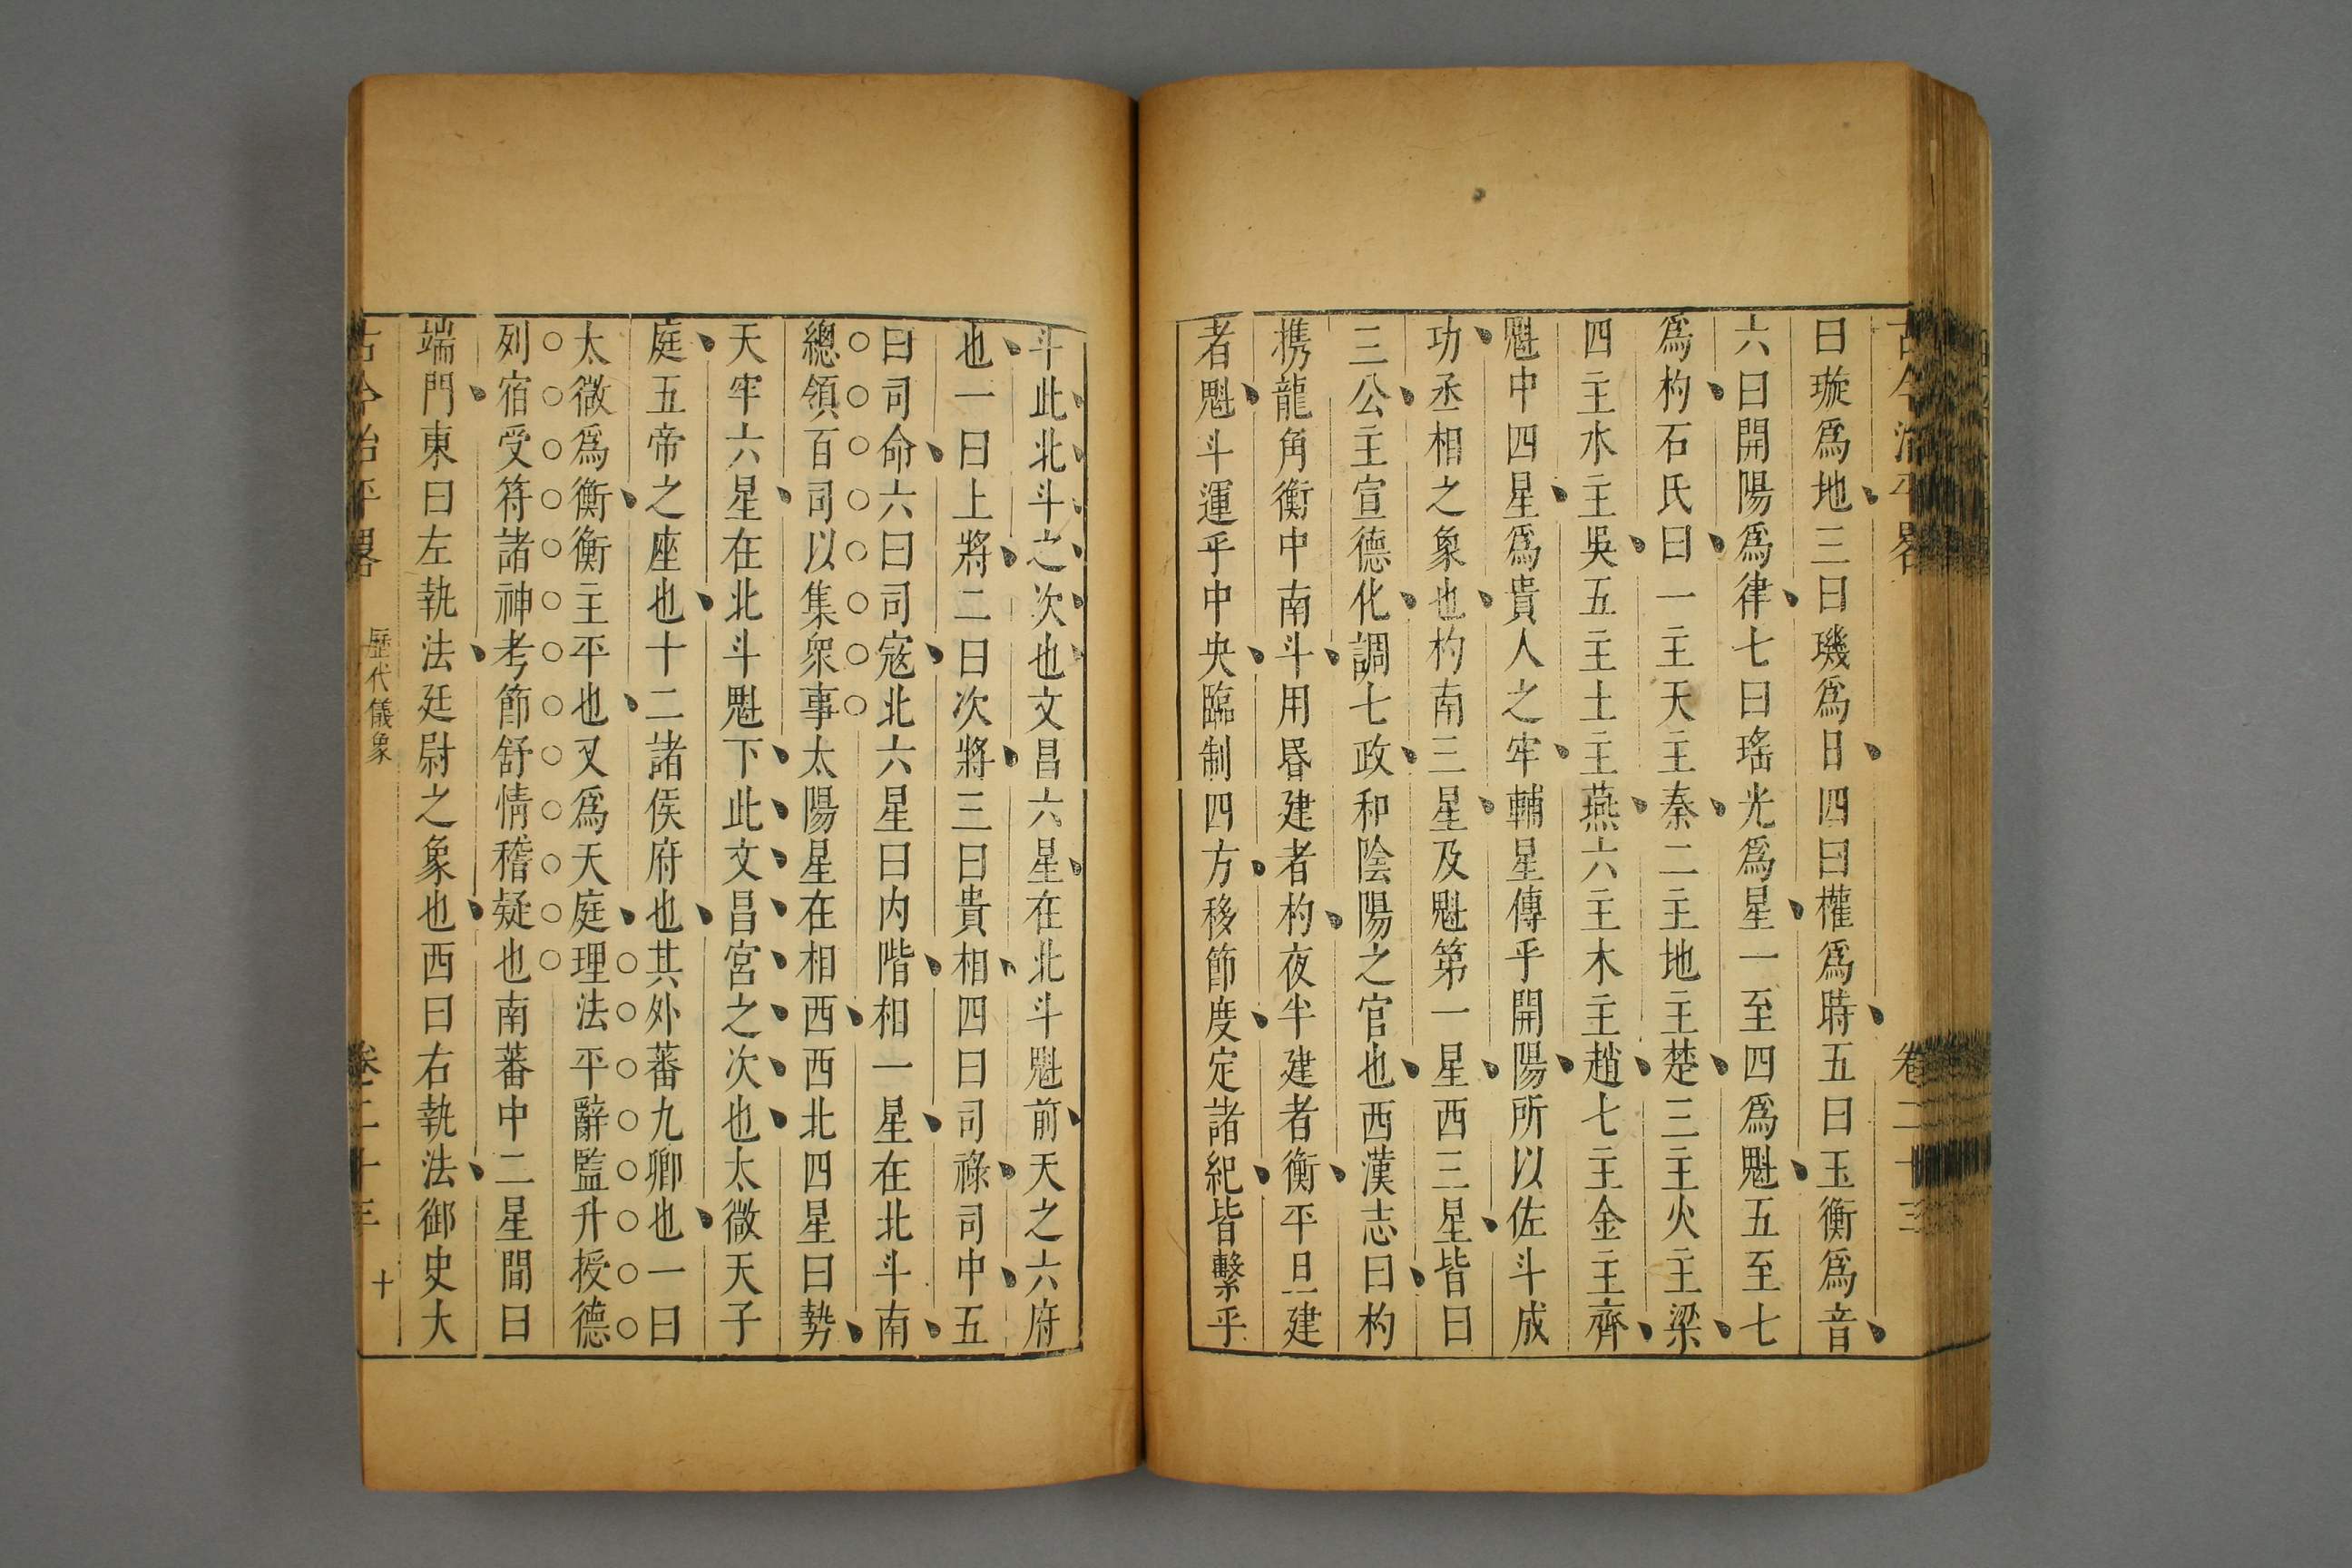 古今治平畧 卷二十三
曰璇爲地三曰璣爲日四曰權爲時五曰玉衡爲音
六曰開陽爲律七曰瑤光爲星一至四爲魁五至七
爲杓石氏曰一主天主秦二主地主楚三主火主梁
四主水主吳五主土主燕六主木主趙七主金主齊
魁中四星爲貴人之牢輔星傳乎開陽所以佐斗成
功丞相之象也杓南三星及魁第一星西三星皆曰
三公主宣德化調七政和陰陽之官也西漢志曰杓
携龍角衡中南斗用昬建者杓夜半建者衡平旦建
者魁斗運乎中央臨制四方移節度定諸紀皆繫乎
斗此北斗之次也文昌六星在北斗魁前天之六府
也一曰上將二曰次將三曰貴相四曰司祿司中五
曰司命六曰司寇北六星曰内階相一星在北斗南
總領百司以集衆事太陽星在相西西北四星曰勢
天牢六星在北斗魁下此文昌宮之次也太微天子
庭五帝之座也十二諸侯府也其外蕃九卿也一曰
太微爲衡衡主平也又爲天庭理法平辭監升授德
列宿受符諸神考節舒情稽疑也南蕃中二星間曰
端門東曰左執法廷尉之象也西曰右執法御史大
古今治平畧 歷代儀象 卷二十三 十